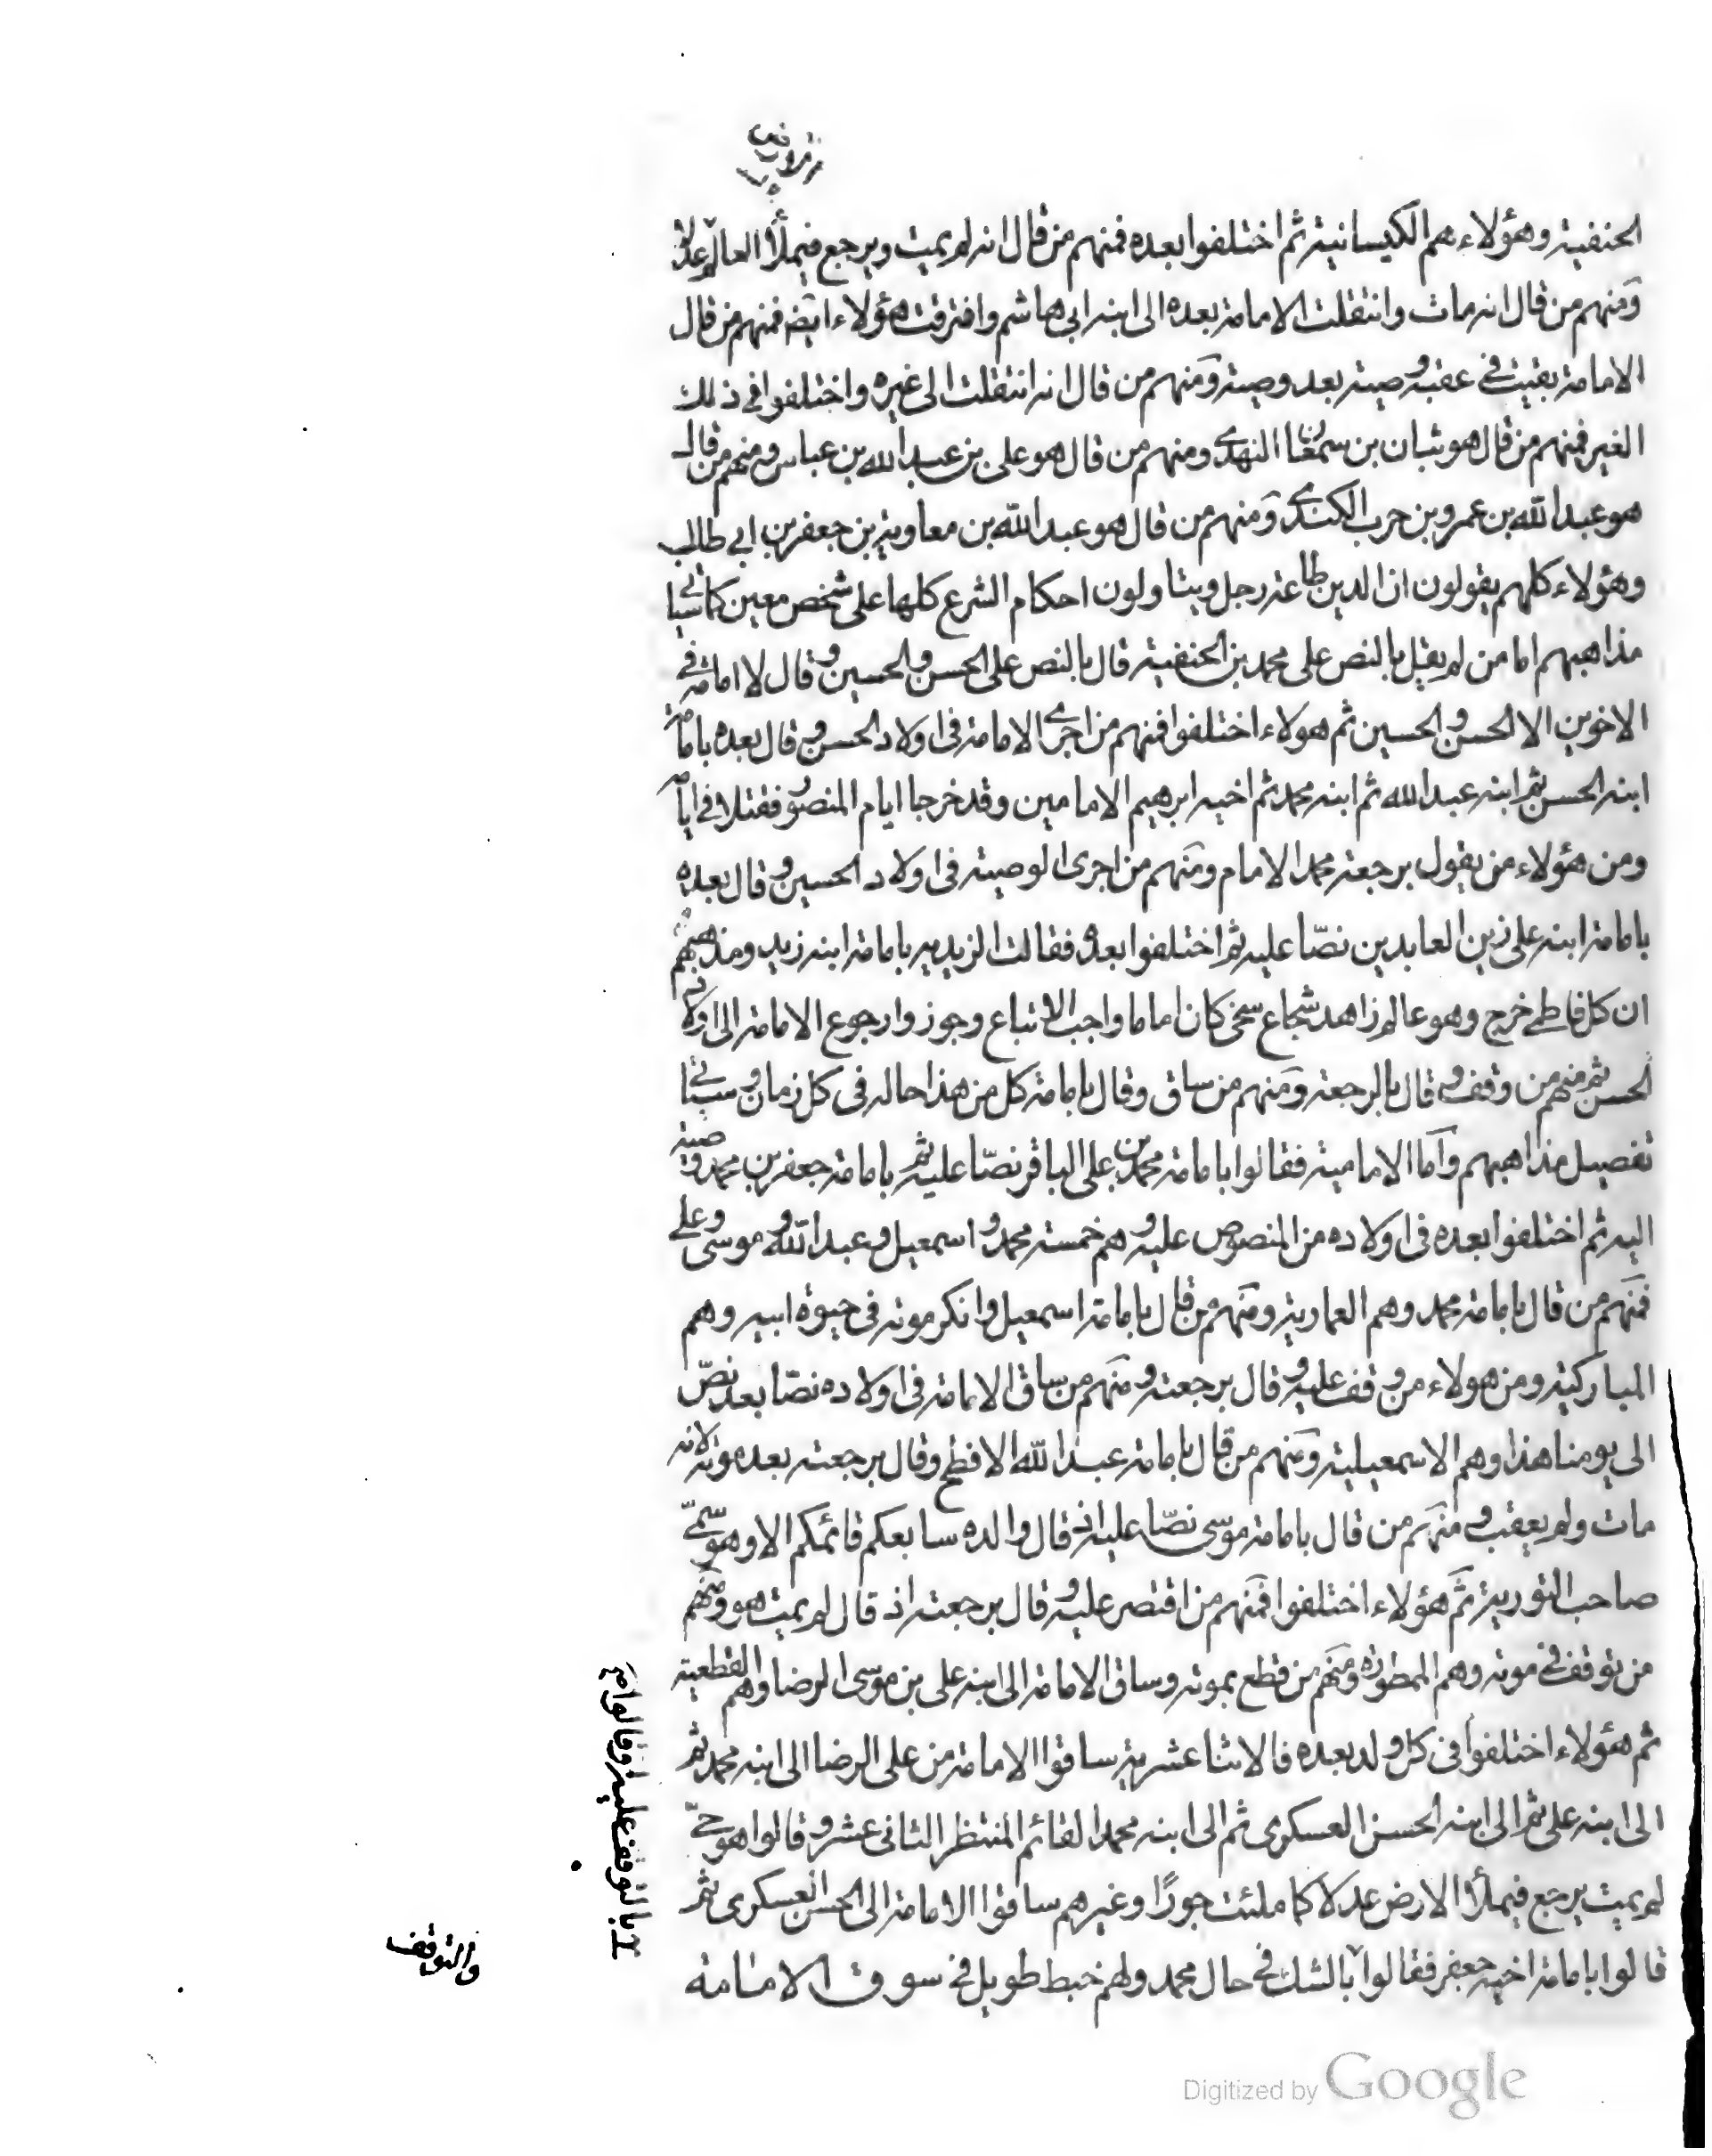 الحنفية وهؤلاء هم الكيسانية ثم اختلفوا بعده فمنهم من قال انه لم يمت ويرجع فيملأ العالم عدلا
ومنهم من قال انه مات وانتقلت الامامة بعده الى ابنه ابي هاشم وافترقت هؤلاء ايضا فمنهم من قال
الامامة بقيت في عقبه وصية بعد وصية ومنهم من قال انه انتقلت الى غيره واختلفوا في ذلك
الغير فمنهم من قال هو بنان بن سمعان النهدي ومنهم من قال هو على بن عبد الله بن عباس ومنهم من قال
هو عبد الله بن عمرو بن حرب الكندي ومنهم من قال هو عبد الله بن معاوية بن جعفر بن ابي طالب
وهؤلاء كلهم يقولون ان الدين طاعة رجل ويتاولون احكام الشرع كلها على شخص معين كما سياتي
مذاهبهم اما من لم يقل بالنص على محمد بن الحنفية قال بالنص على الحسن والحسين وقال لا امامة في
الاخوين الا الحسن والحسين ثم هولاء اختلفوا فمنهم من اجرى الامامة في اولاد الحسن وقال بعده بامامة
ابنه الحسن ثم ابنه عبد الله ثم ابنه محمد ثم اخيه ابرهيم الامامين وقد خرجا ايام المنصور فقتلا في ايامه
ومن هؤلاء من يقول برجعة محمد الامام ومنهم من اجرى الوصية في اولاد الحسين وقال بعده
بامامة ابنه على زين العابدين نصّا عليه ثم اختلفوا بعده فقالت الزيدية بامامة ابنه زيد ومذهبهم
ان كل فاطمي خرج وهو عالم زاهد شجاع سخي كان اماما واجب الاتباع وجوزوا رجوع الامامة الى اولاد
الحسن ثم منهم من وقف وقال بالرجعة ومنهم من ساق وقال بامامة كل من هذا حاله في كل زمان وسياتي
تفصيل مذاهبهم واما الامامية فقالوا بامامة محمد بن على الباقر نصّا عليه ثم بامامة جعفر بن محمد وصية
اليه ثم اختلفوا بعده في اولاده من المنصوص عليه وهم خمسة محمد و اسمعيل وعبد الله وموسى وعلى
فمنهم من قال بامامة محمد وهم العمارية ومنهم من قال بامامة اسمعيل وانكر موته في حيوة ابيه وهم
المباركية ومن هولاء من وقف عليه وقال برجعته ومنهم من ساق الامامة في اولاده نصّا بعد نصّ
الى يومنا هذا وهم الاسمعيلية ومنهم من قال بامامة عبد الله الافطح وقال برجعته بعد موته لانه
مات ولم يعقب ومنهم من قال بامامة موسى نصّا عليه اذ قال والده سابعكم قائمكم الا وهو سمّي
صاحب التورية ثم هؤلاء اختلفوا فمنهم من اقتصر عليه وقال برجعته اذ قال لم يمت هو ومنهم
من توقف في موته وهم الممطورة ومنهم من قطع بموته وساق الامامة الى ابنه على بن موسى الرضا وهم القطعية
ثم هؤلاء اختلفوا في كل ولد بعده فالاثنا عشرية ساقوا الامامة من على الرضا الى ابنه محمد ثم
الى ابنه على ثم الى ابنه الحسن العسكرى ثم الى ابنه محمد القائم المنتظر الثانى عشر وقالوا هو حيّ
لم يمت يرجع فيملأ الارض عدلا كما ملئت جورًا وغيرهم ساقوا الامامة الى الحسن العسكرى ثم
قالوا بامامة اخيه جعفر فقالوا بالشك في حال محمد ولهم خبط طويل في سوق الامامة
بالتوقف عليه وقالوا
والتوقف
Digitized by Google